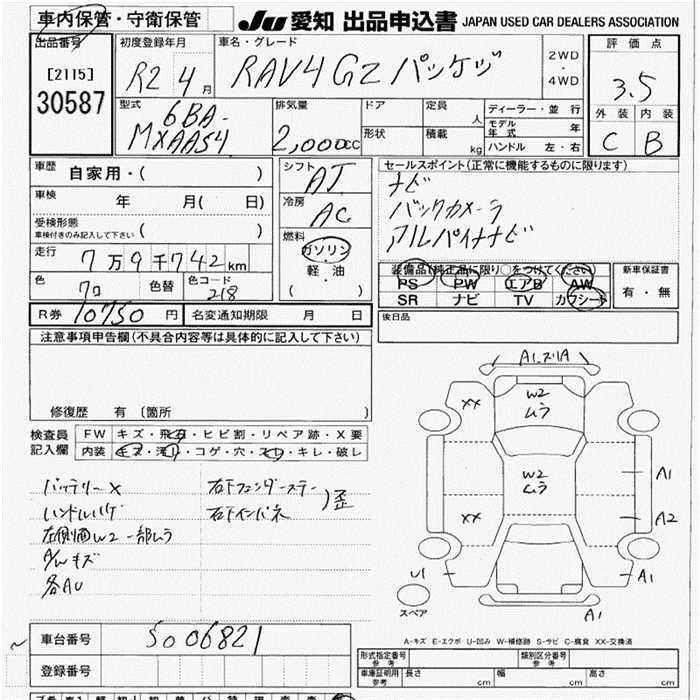 車内保管・守衛保管
JU 愛知 出品申込書 JAPAN USED CAR DEALERS ASSOCIATION
出品番号
[2115]
30587
初度登録年月
R2 4月
車名・グレード
RAV4 GZ パッケージ
2WD
・
4WD
評価点
3.5
外装 内装
C B
型式
6BA-
MXAA54
排気量
2,000cc
ドア
形状
定員 人
積載 kg
ディーラー・並行
モデル年式 年
ハンドル 左・右
車歴 自家用・( )
車検 年 月( 日)
受検形態
車検付きのみ記入して下さい ( )
走行 7万9千742km
色 クロ 色替 色コード 218
シフト AT
冷房 AC
燃料
ガソリン
軽・油
( ・ )
セールスポイント(正常に機能するものに限ります)
ナビ
バックカメラ
アルパインナビ
装備品(純正品に限り○をつけてください)
PS PW エアB AW
SR ナビ TV カワシート
新車保証書
有・無
R券 10750円 名変通知期限 月 日
後日品
注意事項申告欄(不具合内容等は具体的に記入して下さい)
修復歴 有 (箇所 )
検査員
記入欄
FW キズ・飛石・ヒビ割・リペア跡・X要
内装 キズ・汚れ・コゲ・穴・スレ・キレ・破レ
バッテリーX
ハンドルハゲ
左側面W2一部ムラ
A/Wキズ
各AU
右下フェンダーステー
右下インパネ
)歪
A1.ズリA
XX
W2
ムラ
W2
ムラ
XX
A1
A2
U1
A1
A1
スペア
A-キズ E-エクボ U-凹み W-補修跡 S-サビ C-腐食 XX-交換済
車台番号 5006821
登録番号
形式指定番号
参考
類別区分番号
参考
車庫証明用
参考
長さ cm 幅 cm 高さ cm